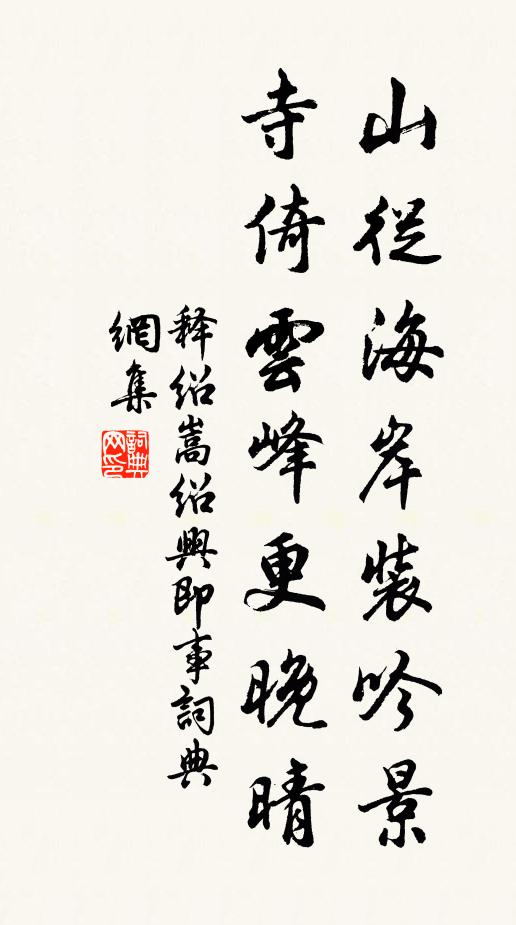 山從海岸裝吟景
寺倚雲峰更晚晴
释紹嵩紹興即事詞典
網集
詞典網印